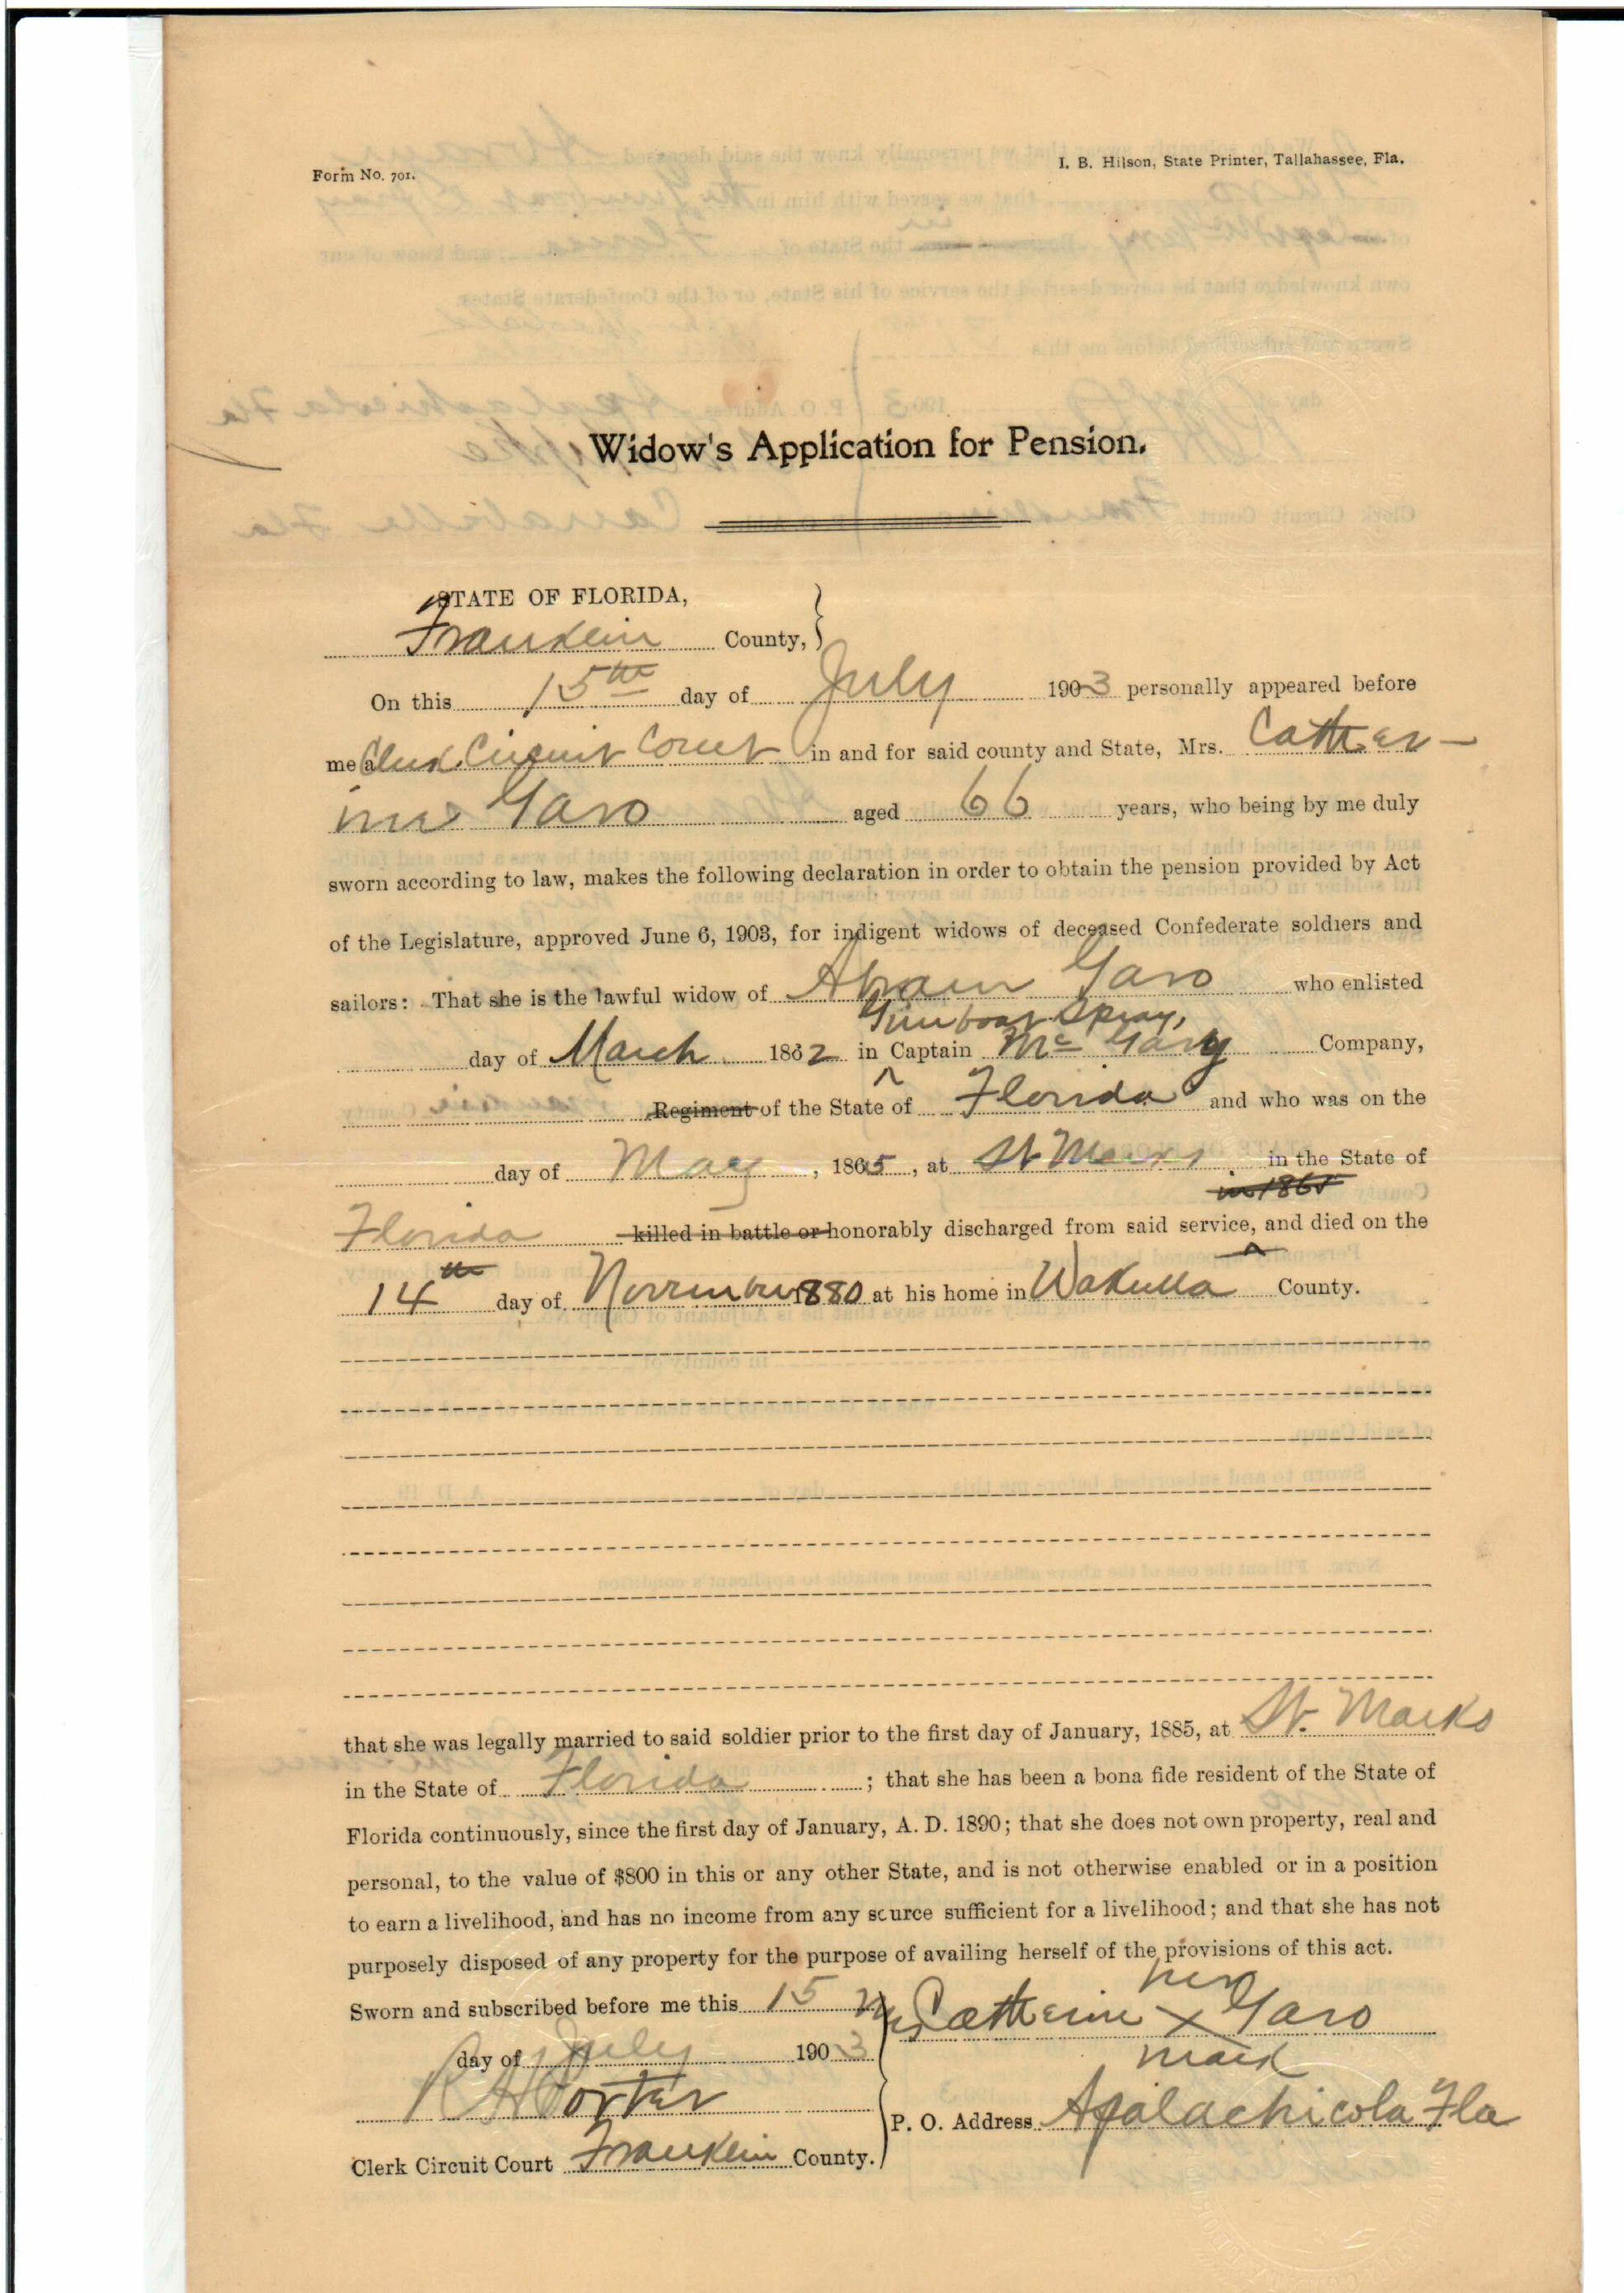 Form No. 701.
I. B. Hilson, State Printer, Tallahassee, Fla.
Widow's Application for Pension.
STATE OF FLORIDA,
Franklin County,
On this 15th day of July 1903 personally appeared before
me a Clerk Circuit Court in and for said county and State, Mrs. Cather-
ine Garo aged 66 years, who being by me duly
sworn according to law, makes the following declaration in order to obtain the pension provided by Act
of the Legislature, approved June 6, 1903, for indigent widows of deceased Confederate soldiers and
sailors: That she is the lawful widow of Abram Garo who enlisted
Gunboat Spray,
day of March 1862 in Captain Mc Gary Company,
Regiment of the State of Florida and who was on the
day of May, 1865, at St Marks in the State of
in 1865
Florida killed in battle or honorably discharged from said service, and died on the
14th day of November 1880 at his home in Wakulla County.
that she was legally married to said soldier prior to the first day of January, 1885, at St. Marks
in the State of Florida; that she has been a bona fide resident of the State of
Florida continuously, since the first day of January, A. D. 1890; that she does not own property, real and
personal, to the value of $800 in this or any other State, and is not otherwise enabled or in a position
to earn a livelihood, and has no income from any source sufficient for a livelihood; and that she has not
purposely disposed of any property for the purpose of availing herself of the provisions of this act.
her
Sworn and subscribed before me this 15 Mrs Catherine x Garo
mark
day of July 1903
R H Porter
P. O. Address Apalachicola Fla
Clerk Circuit Court Franklin County.